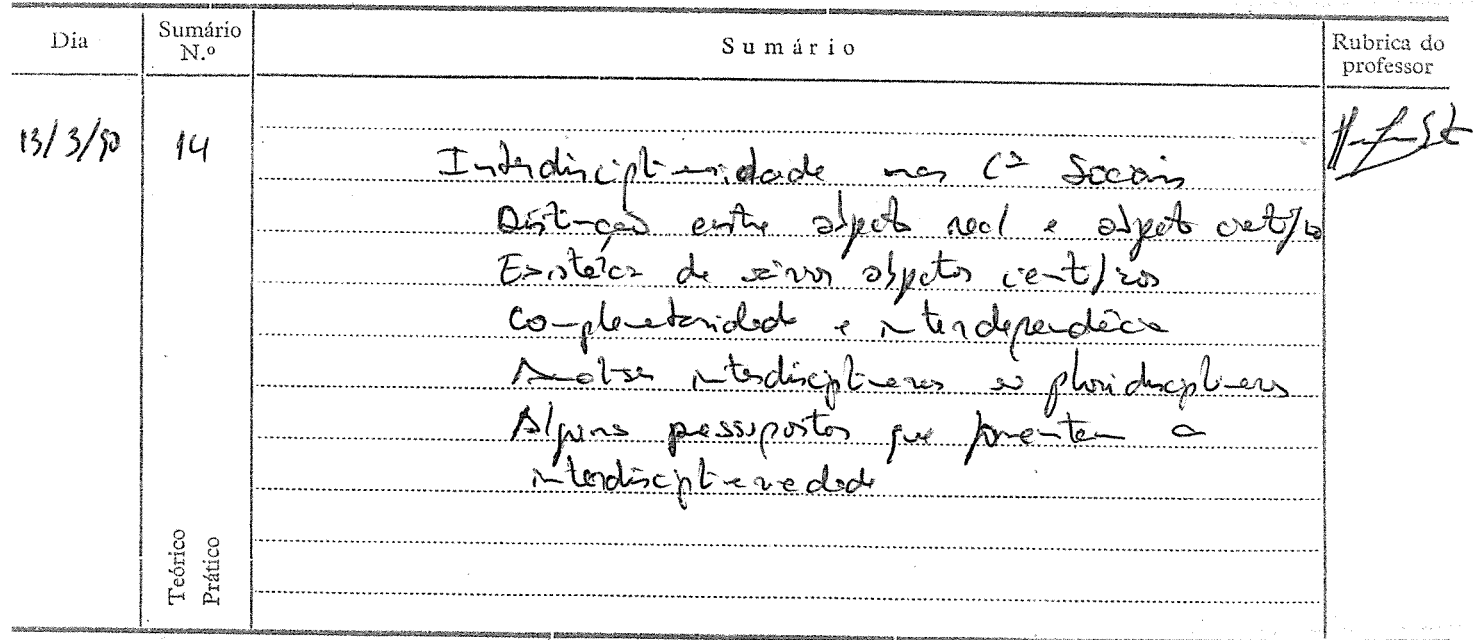 Dia
Sumário N.º
Sumário
Rubrica do professor
13/3/90
14
Interdisciplinaridade nas C.as Sociais
Distinção entre objecto real e objecto cient/co
Existência de vários objectos cient/cos
Complementaridade e interdependência
Análises interdisciplinares e pluridisciplinares
Alguns pressupostos que fomentam a
interdisciplinaridade
Teórico
Prático